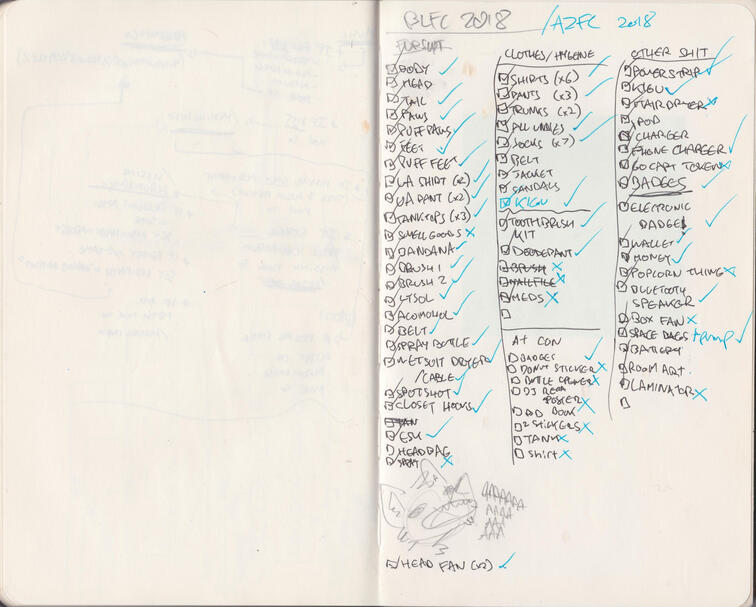 BLFC 2018 / AZFC 2018
FURSUIT
BODY
HEAD
TAIL
PAWS
PUFF PAWS
FEET
PUFF FEET
UA SHIRT (x2)
UA PANT (x2)
TANKTOPS (x3)
SMELL GOODS
BANDANA
BRUSH 1
BRUSH 2
LYSOL
BELT
SPRAY BOTTLE
WETSUIT DRYER
/CABLE
SPOTSHOT
CLOSET HOOKS
FAN
HEADBAG
HEAD FAN (x2)
CLOTHES/HYGENE
SHIRTS (x6)
PANTS (x3)
TRUNKS (x2)
ALL UNDIES
SOCKS (x7)
BELT
JACKET
SANDALS
KIGU
TOOTHBRUSH
KIT
DEODERANT
BRUSH
NAILFILE
MEDS
AT CON
BADGES
DONUT STICKER
BOTTLE OPENER
DJ
POSTER
BOOK
2 STICKERS
TANK
SHIRT
OTHER SHIT
POWERSTRIP
KIGU
HAIRDRYER
POD
CHARGER
PHONE CHARGER
GO CART TOKEN
BADGES
ELECTRONIC
BADGES
WALLET
MONEY
POPCORN THING
BLUETOOTH
SPEAKER
BOX FAN
SPACE BAGS + pump
BATTERY
ROOM ART
LAMINATOR